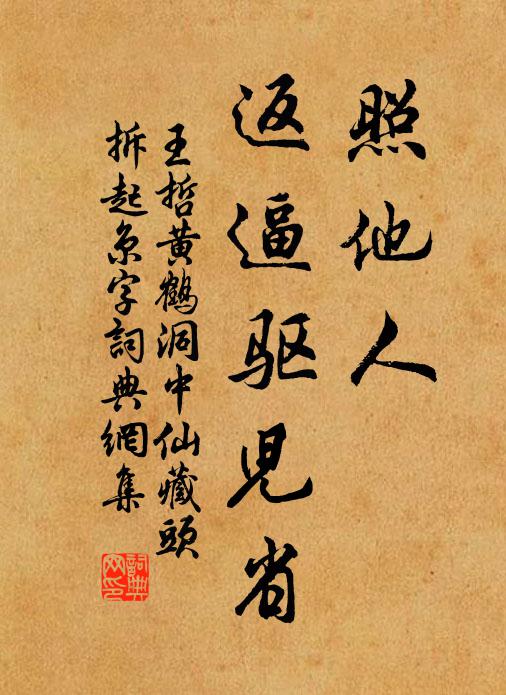 照他人
返逼驱児省
王哲黄鶴洞中仙藏頭
拆起京字詞典網集
詞典网印